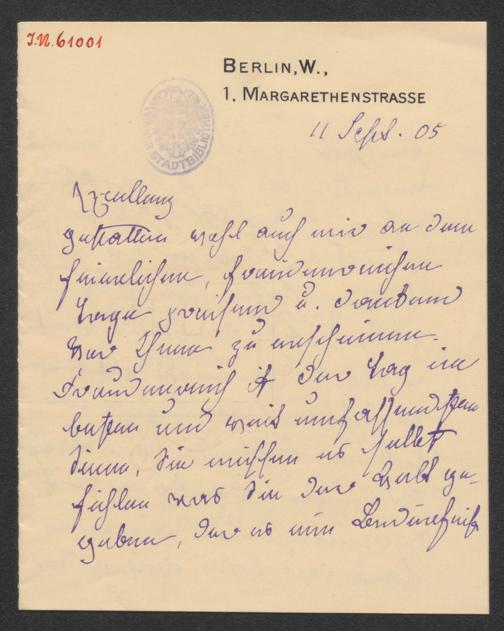 I.N. 61001
BERLIN, W.,
1, MARGARETHENSTRASSE
STADTBIBLIOTHEK
11 Sept. 05
Excellenz
gestatten wohl auch mir an dem
feierlichen, freudenreichen
Tage preisend u. dankend
vor Ihnen zu erscheinen.
Freudenreich ist der Tag im
besten und weit umfassendsten
Sinne, Sie müssen es selbst
fühlen was Sie der Welt ge-
geben, der es ein Bedürfniß